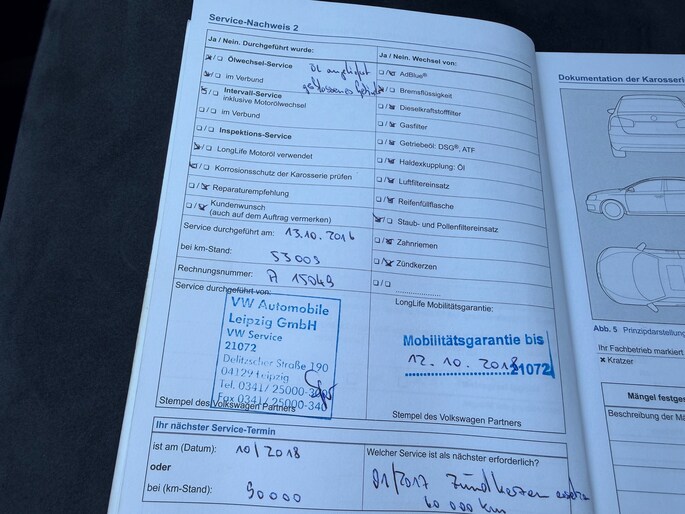 Service-Nachweis 2
Ja / Nein. Durchgeführt wurde:
Ölwechsel-Service
im Verbund
Intervall-Service
inklusive Motorölwechsel
im Verbund
Inspektions-Service
LongLife Motoröl verwendet
Korrosionsschutz der Karosserie prüfen
Reparaturempfehlung
Kundenwunsch
(auch auf dem Auftrag vermerken)
Service durchgeführt am: 13.10.2016
bei km-Stand: 53003
Rechnungsnummer: A 15049
Service durchgeführt von:
VW Automobile
Leipzig GmbH
VW Service
21072
Delitzscher Straße 190
04129 Leipzig
Tel. 0341/ 25000-
Fax 0341/ 25000-340
Stempel des Volkswagen Partners
Ja / Nein. Wechsel von:
AdBlue®
Bremsflüssigkeit
Dieselkraftstofffilter
Gasfilter
Getriebeöl: DSG®, ATF
Haldexkupplung: Öl
Luftfiltereinsatz
Reifenfüllflasche
Staub- und Pollenfiltereinsatz
Zahnriemen
Zündkerzen
LongLife Mobilitätsgarantie:
Mobilitätsgarantie bis
12.10.2018 21072
Stempel des Volkswagen Partners
Ihr nächster Service-Termin
ist am (Datum): 10/2018
oder
bei (km-Stand): 90000
Welcher Service ist als nächster erforderlich?
01/2017 Zündkerzen
60 000 km
Dokumentation der Karosserie
Abb. 5 Prinzipdarstellung
Ihr Fachbetrieb markiert
× Kratzer
Mängel festges
Beschreibung der Mä